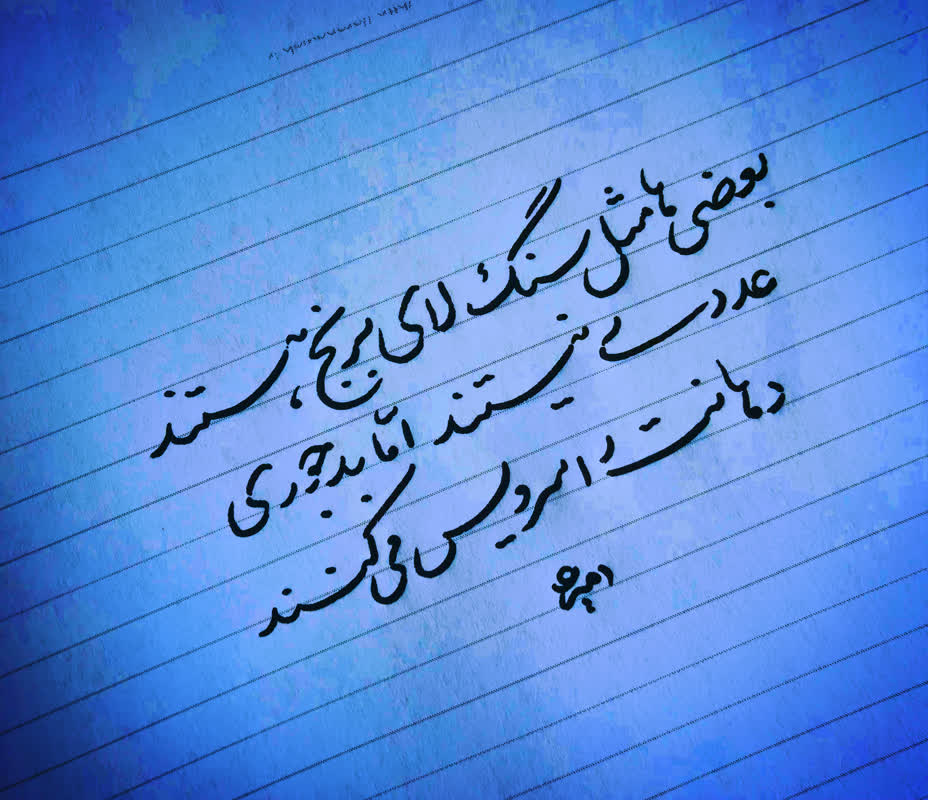 بعضی ها مثل سنگ لای برنج هستند
عددی نیستند اما بدجوری
دهانت را سرویس می کنند